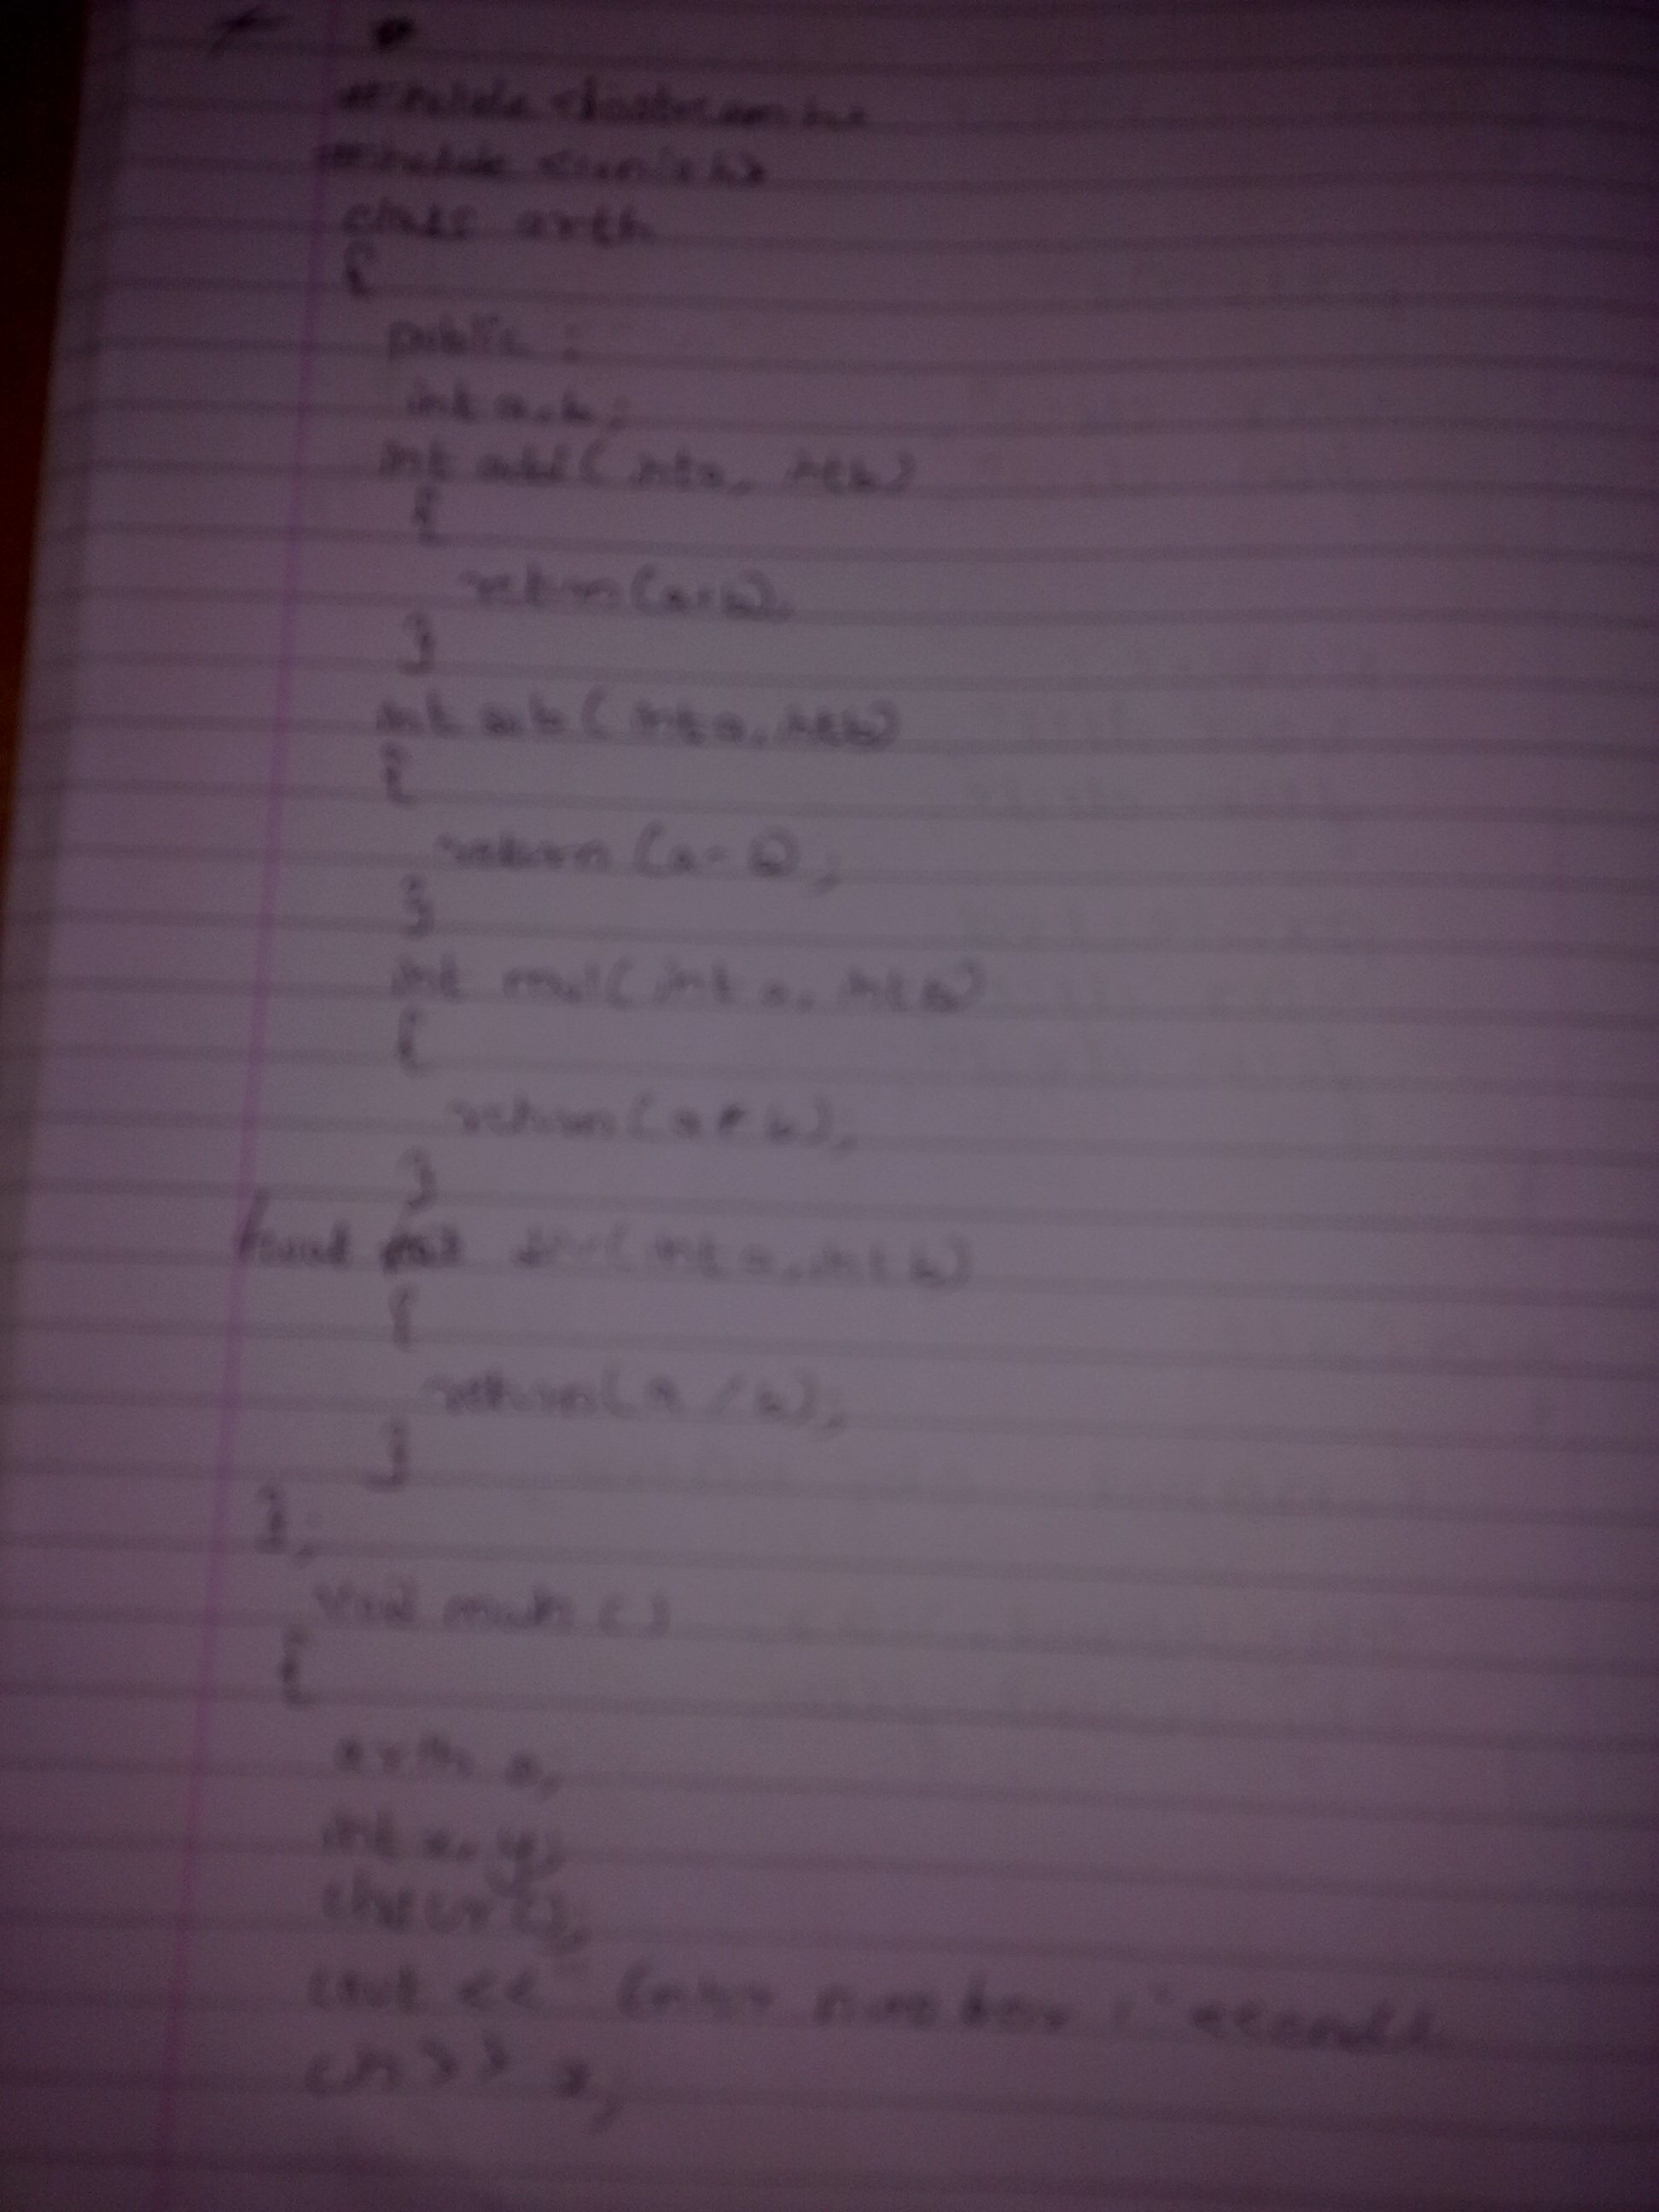 #include <iostream.h>
#include <conio.h>
class arth
{
public :
int a,b;
int add( int a, int b)
{
return(a+b);
}
int sub( int a, int b)
{
return (a-b);
}
int mul( int a, int b)
{
return(a*b);
}
float div(int a, int b)
{
return(a / b);
}
};
void main ()
{
arth a;
int x, y;
clrscr();
cout << " Enter number : " <<endl;
cin >> x;